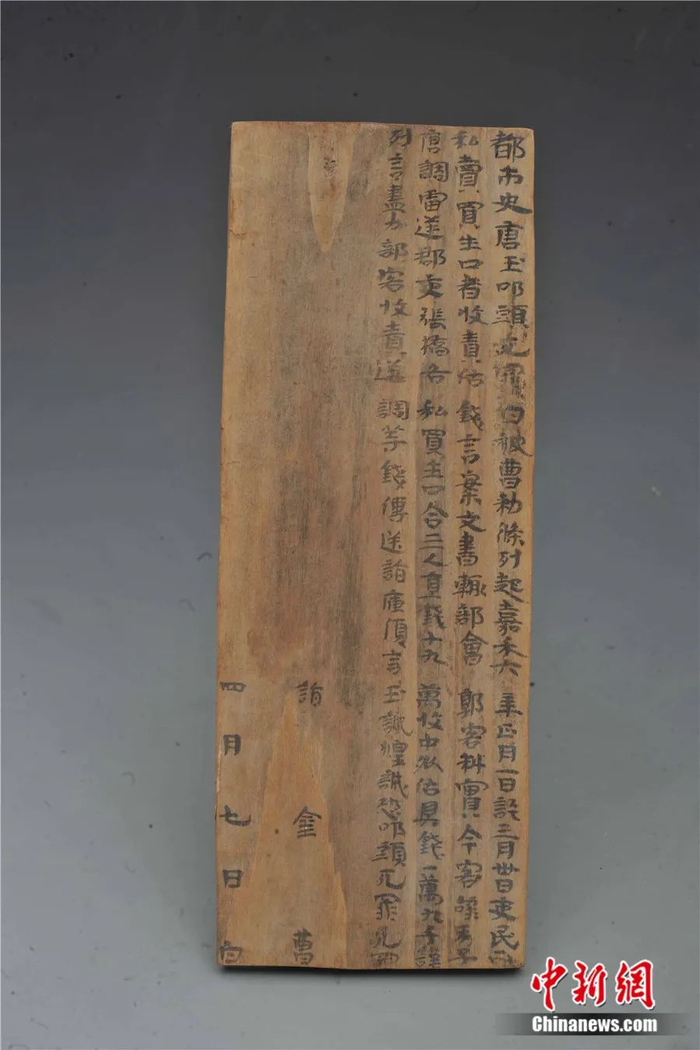 都市史唐玉叩頭死罪白被曹敕條列起嘉禾六年正月一日訖三月卅日吏民所
私賣買生口者收責估錢言案文書輒部會郭客料實今客辭男子
唐調雷逆郡吏張橋各私買生口合三人直錢十九萬收中外估具錢一萬九千謹
列言盡力部客收責逆調等錢傳送詣庫復言玉誠惶誠恐叩頭死罪死罪
詣金曹
四月七日白
中新網
Chinanews.com